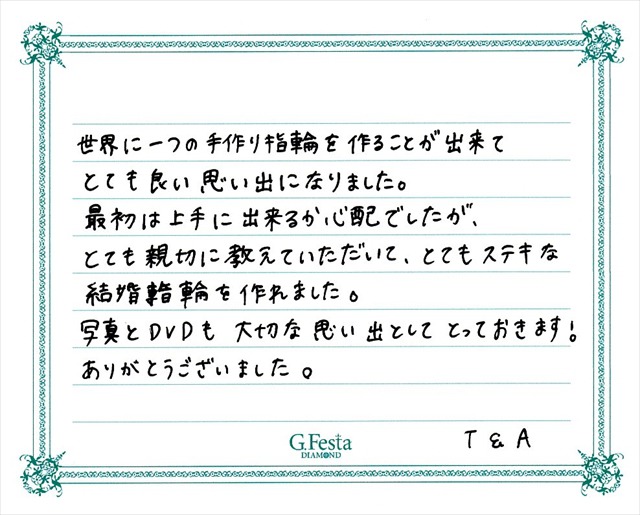 世界に一つの手作り指輪を作ることが出来て
とても良い思い出になりました。
最初は上手に出来るか心配でしたが、
とても親切に教えていただいて、とてもステキな
結婚指輪を作れました。
写真とDVDも大切な思い出としてとっておきます!
ありがとうございました。
T & A
G.Festa
DIAMOND